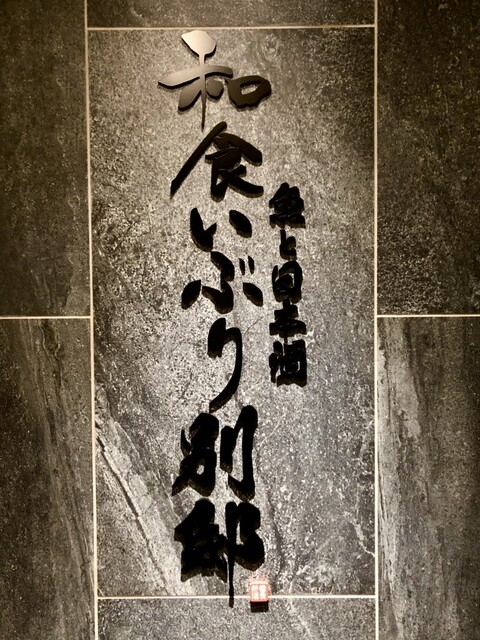 魚と日本酒
和食いぶり別邸